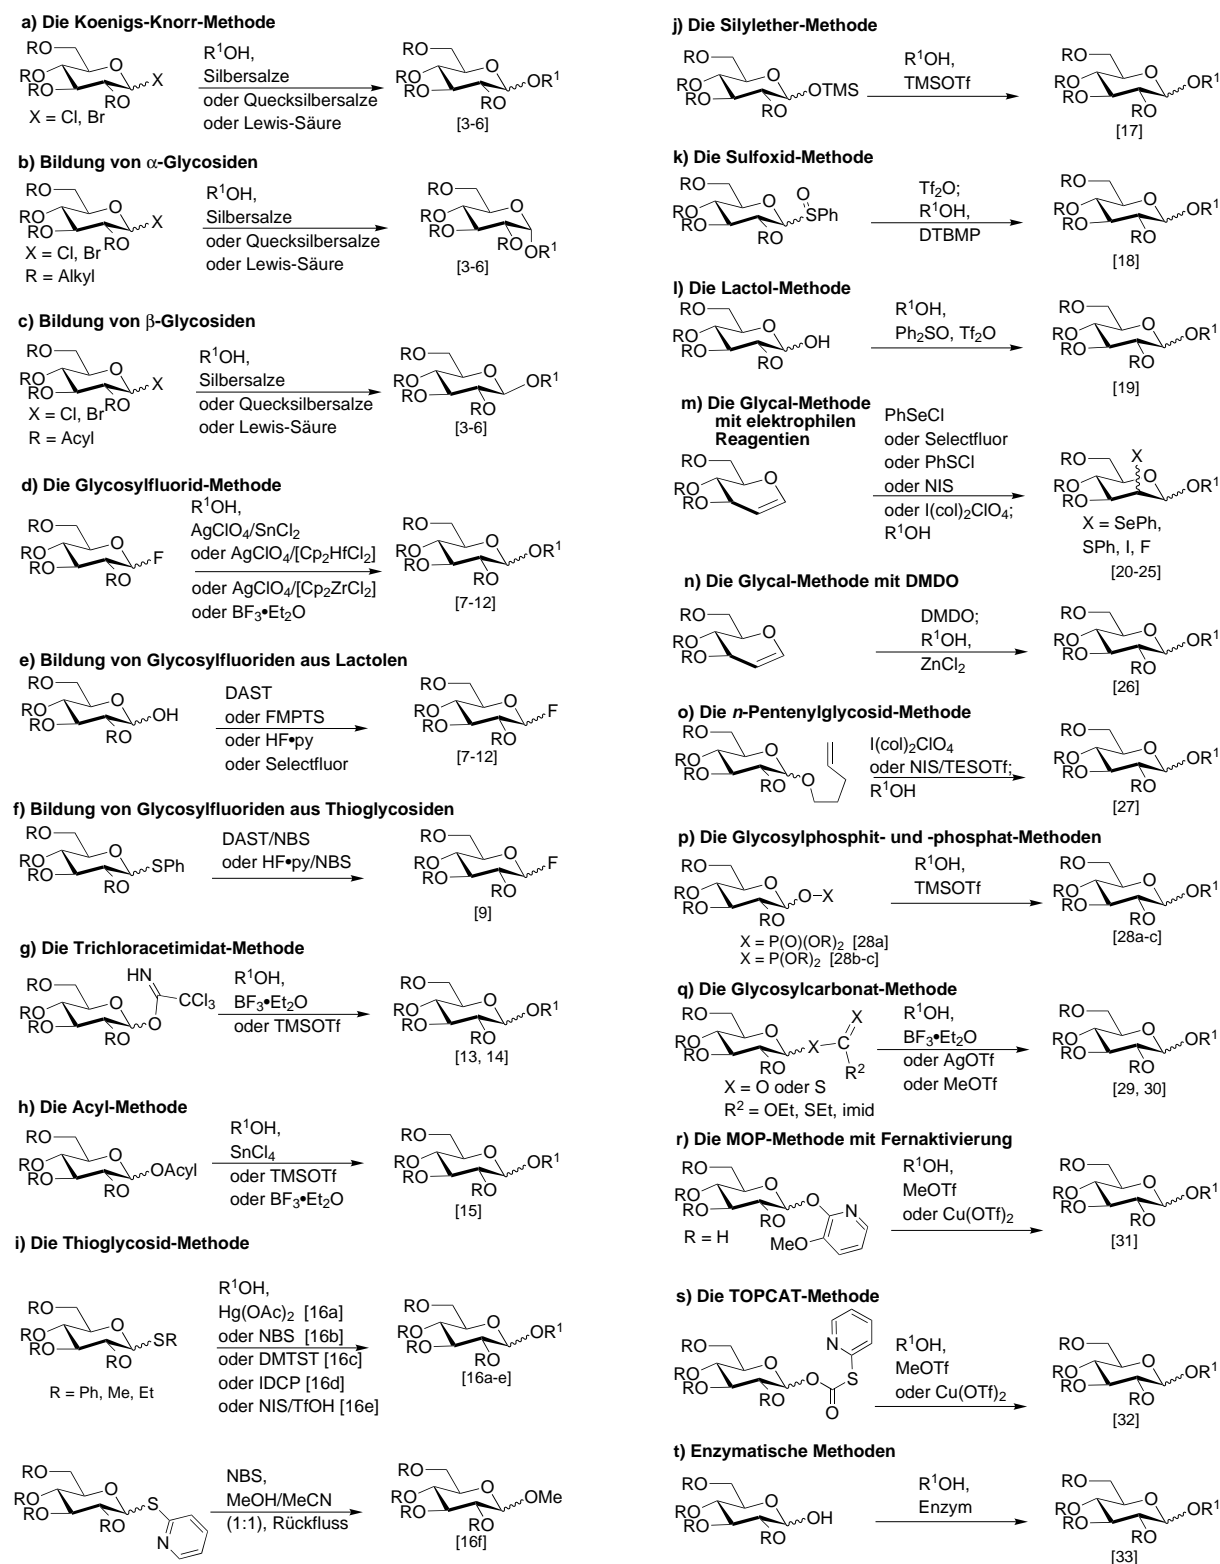 a) Die Koenigs-Knorr-Methode
RO
RO
RO
RO
O
X
X = Cl, Br
R¹OH,
Silbersalze
oder Quecksilbersalze
oder Lewis-Säure
RO
RO
RO
RO
O
OR¹
[3-6]
b) Bildung von α-Glycosiden
RO
RO
RO
RO
O
X
X = Cl, Br
R = Alkyl
R¹OH,
Silbersalze
oder Quecksilbersalze
oder Lewis-Säure
RO
RO
RO
RO
O
OR¹
[3-6]
c) Bildung von β-Glycosiden
RO
RO
RO
RO
O
X
X = Cl, Br
R = Acyl
R¹OH,
Silbersalze
oder Quecksilbersalze
oder Lewis-Säure
RO
RO
RO
RO
O
OR¹
[3-6]
d) Die Glycosylfluorid-Methode
RO
RO
RO
RO
O
F
R¹OH,
AgClO₄/SnCl₂
oder AgClO₄/[Cp₂HfCl₂]
oder AgClO₄/[Cp₂ZrCl₂]
oder BF₃•Et₂O
RO
RO
RO
RO
O
OR¹
[7-12]
e) Bildung von Glycosylfluoriden aus Lactolen
RO
RO
RO
RO
O
OH
DAST
oder FMPTS
oder HF•py
oder Selectfluor
RO
RO
RO
RO
O
F
[7-12]
f) Bildung von Glycosylfluoriden aus Thioglycosiden
RO
RO
RO
RO
O
SPh
DAST/NBS
oder HF•py/NBS
RO
RO
RO
RO
O
F
[9]
g) Die Trichloracetimidat-Methode
RO
RO
RO
RO
O
O
HN
CCl₃
R¹OH,
BF₃•Et₂O
oder TMSOTf
RO
RO
RO
RO
O
OR¹
[13, 14]
h) Die Acyl-Methode
RO
RO
RO
RO
O
OAcyl
R¹OH,
SnCl₄
oder TMSOTf
oder BF₃•Et₂O
RO
RO
RO
RO
O
OR¹
[15]
i) Die Thioglycosid-Methode
RO
RO
RO
RO
O
SR
R = Ph, Me, Et
R¹OH,
Hg(OAc)₂ [16a]
oder NBS [16b]
oder DMTST [16c]
oder IDCP [16d]
oder NIS/TfOH [16e]
RO
RO
RO
RO
O
OR¹
[16a-e]
RO
RO
RO
RO
O
S
N
NBS,
MeOH/MeCN
(1:1), Rückfluss
RO
RO
RO
RO
O
OMe
[16f]
j) Die Silylether-Methode
RO
RO
RO
RO
O
OTMS
R¹OH,
TMSOTf
RO
RO
RO
RO
O
OR¹
[17]
k) Die Sulfoxid-Methode
RO
RO
RO
RO
O
O
SPh
Tf₂O;
R¹OH,
DTBMP
RO
RO
RO
RO
O
OR¹
[18]
l) Die Lactol-Methode
RO
RO
RO
RO
O
OH
R¹OH,
Ph₂SO, Tf₂O
RO
RO
RO
RO
O
OR¹
[19]
m) Die Glycal-Methode
mit elektrophilen
Reagentien
RO
RO
RO
O
PhSeCl
oder Selectfluor
oder PhSCl
oder NIS
oder I(col)₂ClO₄;
R¹OH
RO
RO
RO
X
O
OR¹
X = SePh,
SPh, I, F
[20-25]
n) Die Glycal-Methode mit DMDO
RO
RO
RO
O
DMDO;
R¹OH,
ZnCl₂
RO
RO
RO
RO
O
OR¹
[26]
o) Die n-Pentenylglycosid-Methode
RO
RO
RO
RO
O
O
I(col)₂ClO₄
oder NIS/TESOTf;
R¹OH
RO
RO
RO
RO
O
OR¹
[27]
p) Die Glycosylphosphit- und -phosphat-Methoden
RO
RO
RO
RO
O
O–X
X = P(O)(OR)₂ [28a]
X = P(OR)₂ [28b-c]
R¹OH,
TMSOTf
RO
RO
RO
RO
O
OR¹
[28a-c]
q) Die Glycosylcarbonat-Methode
RO
RO
RO
RO
O
X
C
X
R²
X = O oder S
R² = OEt, SEt, imid
R¹OH,
BF₃•Et₂O
oder AgOTf
oder MeOTf
RO
RO
RO
RO
O
OR¹
[29, 30]
r) Die MOP-Methode mit Fernaktivierung
RO
RO
RO
RO
O
O
N
MeO
R = H
R¹OH,
MeOTf
oder Cu(OTf)₂
RO
RO
RO
RO
O
OR¹
[31]
s) Die TOPCAT-Methode
RO
RO
RO
RO
O
O
O
S
N
R¹OH,
MeOTf
oder Cu(OTf)₂
RO
RO
RO
RO
O
OR¹
[32]
t) Enzymatische Methoden
RO
RO
RO
RO
O
OH
R¹OH,
Enzym
RO
RO
RO
RO
O
OR¹
[33]